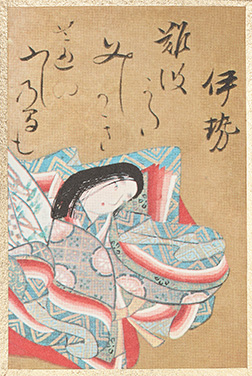 伊勢
難波かた
みしかき
あしの
ふしのまも